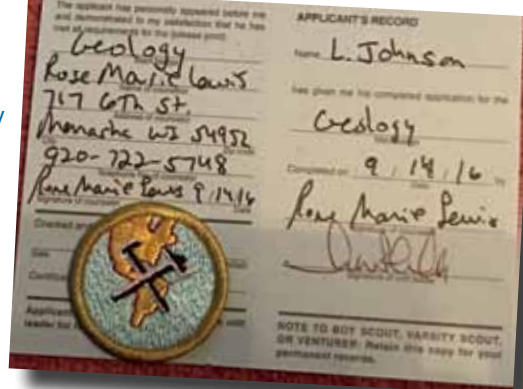 The applicant has personally appeared before me
and demonstrated to my satisfaction that he has
met all requirements for the (please print)
Geology
Rose Marie Lewis
Name of counselor
717 6Th St.
Address of counselor
Menasha WI 54952
City
920-722-5748
Telephone
Rose Marie Lewis 9/14/16
Signature of counselor
Date
APPLICANT'S RECORD
Name L. Johnson
has given me his completed application for the
Geology
Completed on 9 / 14 / 16 by
Date
Rose Marie Lewis
Signature of
NOTE TO BOY SCOUT, VARSITY SCOUT,
OR VENTURER: Retain this copy for your
permanent records.